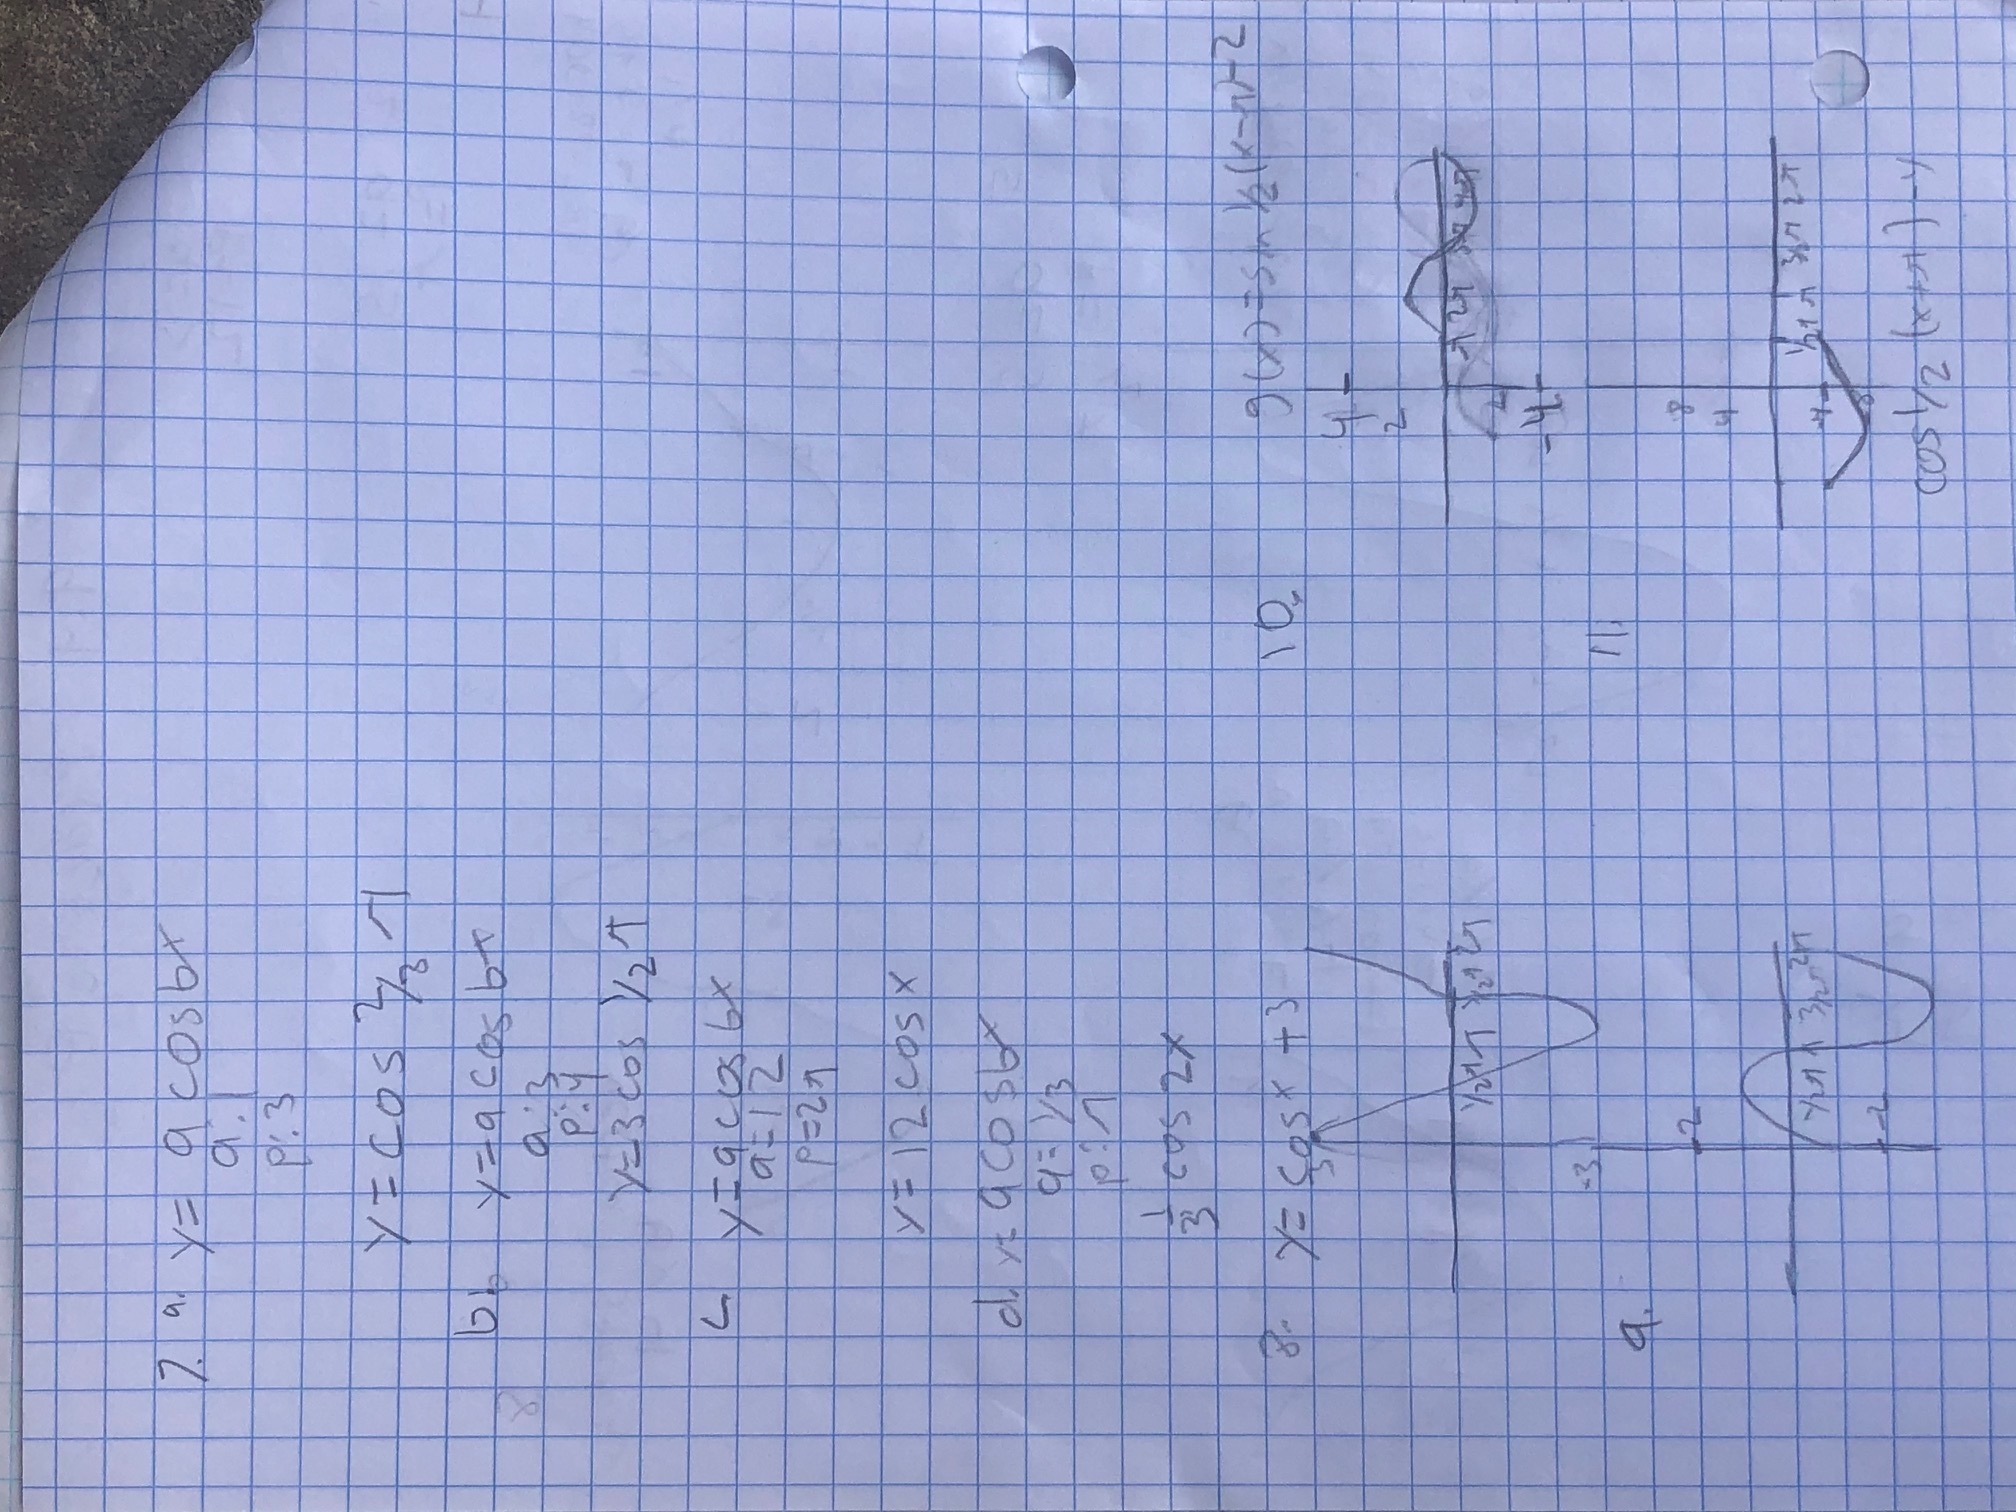 7. a. y= a cos bx
a: 1
p: 3
y = cos 2/3 π
b. y = a cos bx
a: 3
p: 4
y=3 cos 1/2 π
c. y = a cos bx
a=12
p=2π
y= 12 cos x
d. y= a cos bx
a= 1/3
p: π
1/3 cos 2x
8. y= cos x +3
3
1/2π π 3/2π 2π
-3
9.
2
1/2π π 3/2π 2π
-2
10. g(x)=sin 1/2(x-π)-2
4
2
π 2π 3π 4π
2
-4
11.
8
4
1/2π π 3/2π 2π
-4
-8
cos 1/2 (x+π) -4